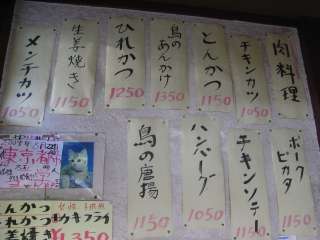 肉料理
チキンカツ 1050
とんかつ 1150
鳥のあんかけ 1350
ひれかつ 1250
生姜焼き 1150
メンチカツ 1050
ポークピカタ 1150
チキンソテー
ハンバーグ 1050
鳥の唐揚 1150
んかつ
れかつ
姜焼き
1,350